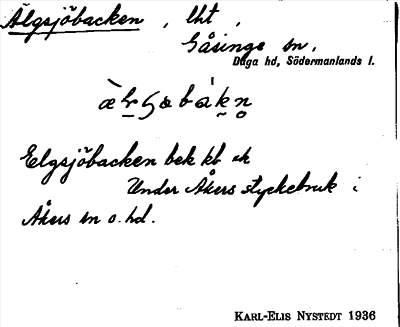 Älgsjöbacken, lht,
Gåsinge sn,
Daga hd, Södermanlands l.
Elgsjöbacken bek kb ek
Under Åkers styckebruk i
Åkers sn o. hd.
KARL-ELIS NYSTEDT 1936